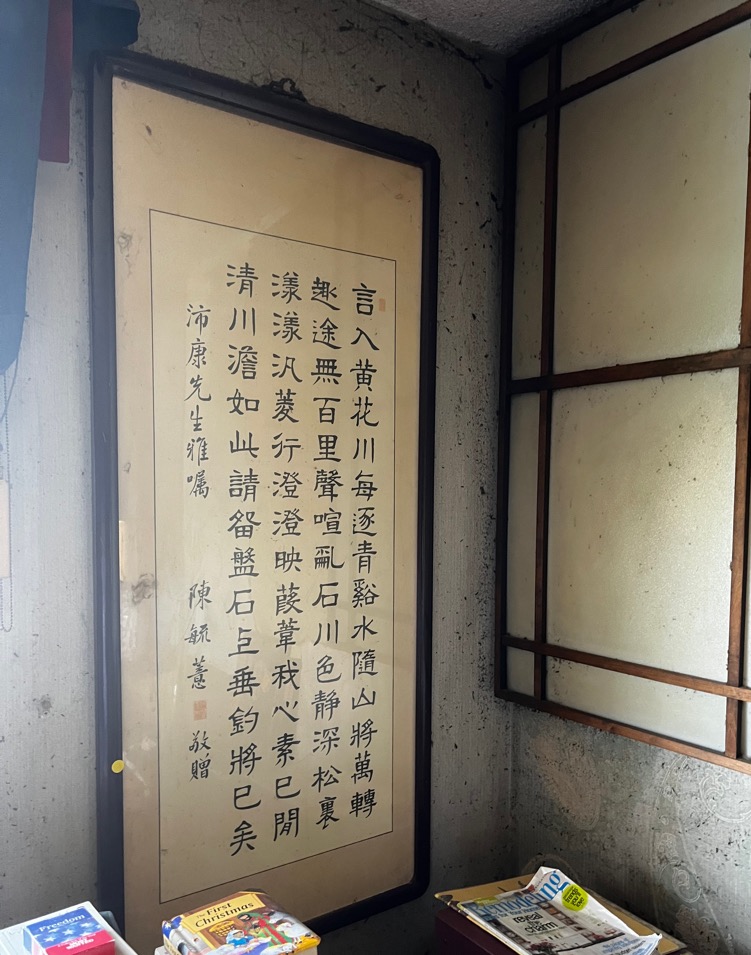 言入黄花川每逐青谿水隨山將萬轉
趣途無百里聲喧亂石川色静深松裏
漾漾汎菱行澄澄映葭葦我心素已閒
清川澹如此請畱盤石上垂釣將已矣
沛康先生雅嘱
陳毓
敬贈
Freedom
The First
Christmas
reveal
charm